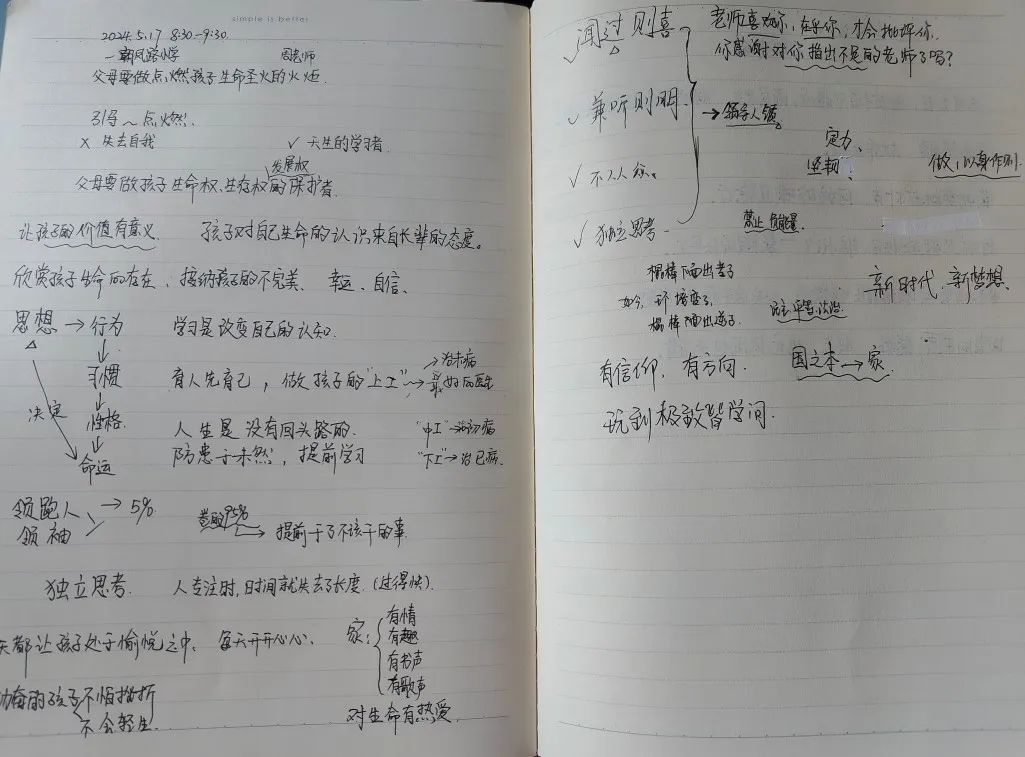 simple is better
2024.5.17 8:30-9:30
一朝凤路小学 周老师
父母要做点燃孩子生命圣火的火炬.
引导~点燃.
× 失去自我 ✓ 天生的学习者
发展权
父母要做孩子生命权、生存权的保护者.
让孩子的价值有意义. 孩子对自己生命的认识来自长辈的态度。
欣赏孩子生命的存在、接纳孩子的不完美、幸运、自信、
思想 → 行为 学习是改变自己的认知.
→治未病
习惯 育人先育己, 做孩子的"上工" → 最好的医生
决定 性格 人生是没有回头路的. "中工"→治初病
命运 防患于未然, 提前学习 "下工"→治已病.
领跑人 → 5%
领袖 卷的95% → 提前干了不该干的事
独立思考. 人专注时,时间就失去了长度.(过得快).
天都让孩子处于愉悦之中, 每天开开心心、
家: 有情
有趣
有书声
有歌声
勤奋的孩子 不怕挫折
不会轻生.
对生命有热爱.
✓ 闻过则喜 老师喜欢你,在乎你,才会批评你.
你感谢对你指出不足的老师了吗?
✓ 兼听则明 → 领导人须
定力、
坚韧、 做,以身作则
✓ 不从众.
✓ 独立思考 禁止负能量.
棍棒下面出孝子
如今, 环境变了, 民主.平等.法治.
棍棒下面出逆子.
新时代、新梦想.
有信仰、有方向. 国之本→家.
玩到极致皆学问.